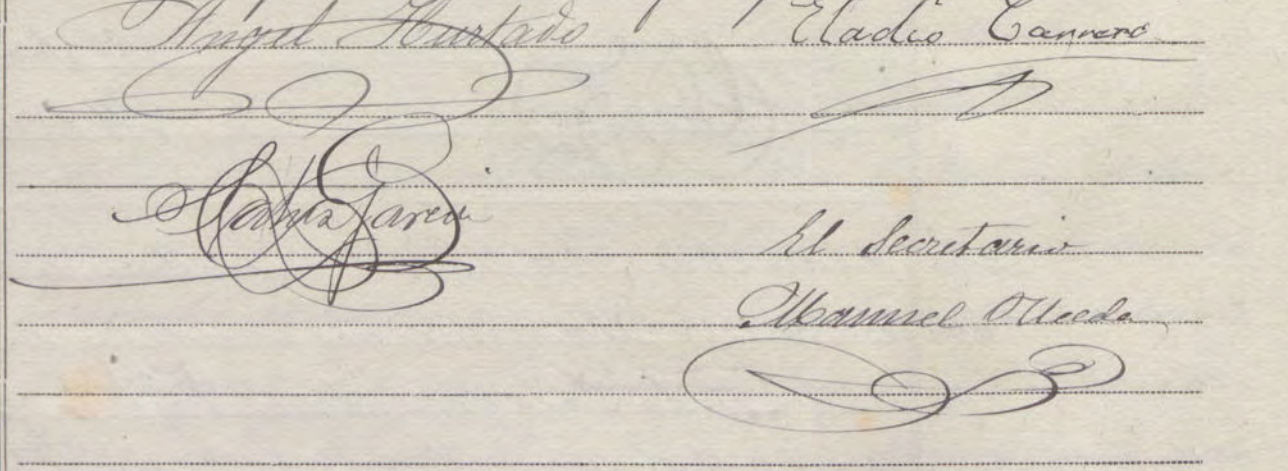 Angel Hurtado Eladio Carrero
Garcia
El Secretario
Manuel Olleeda